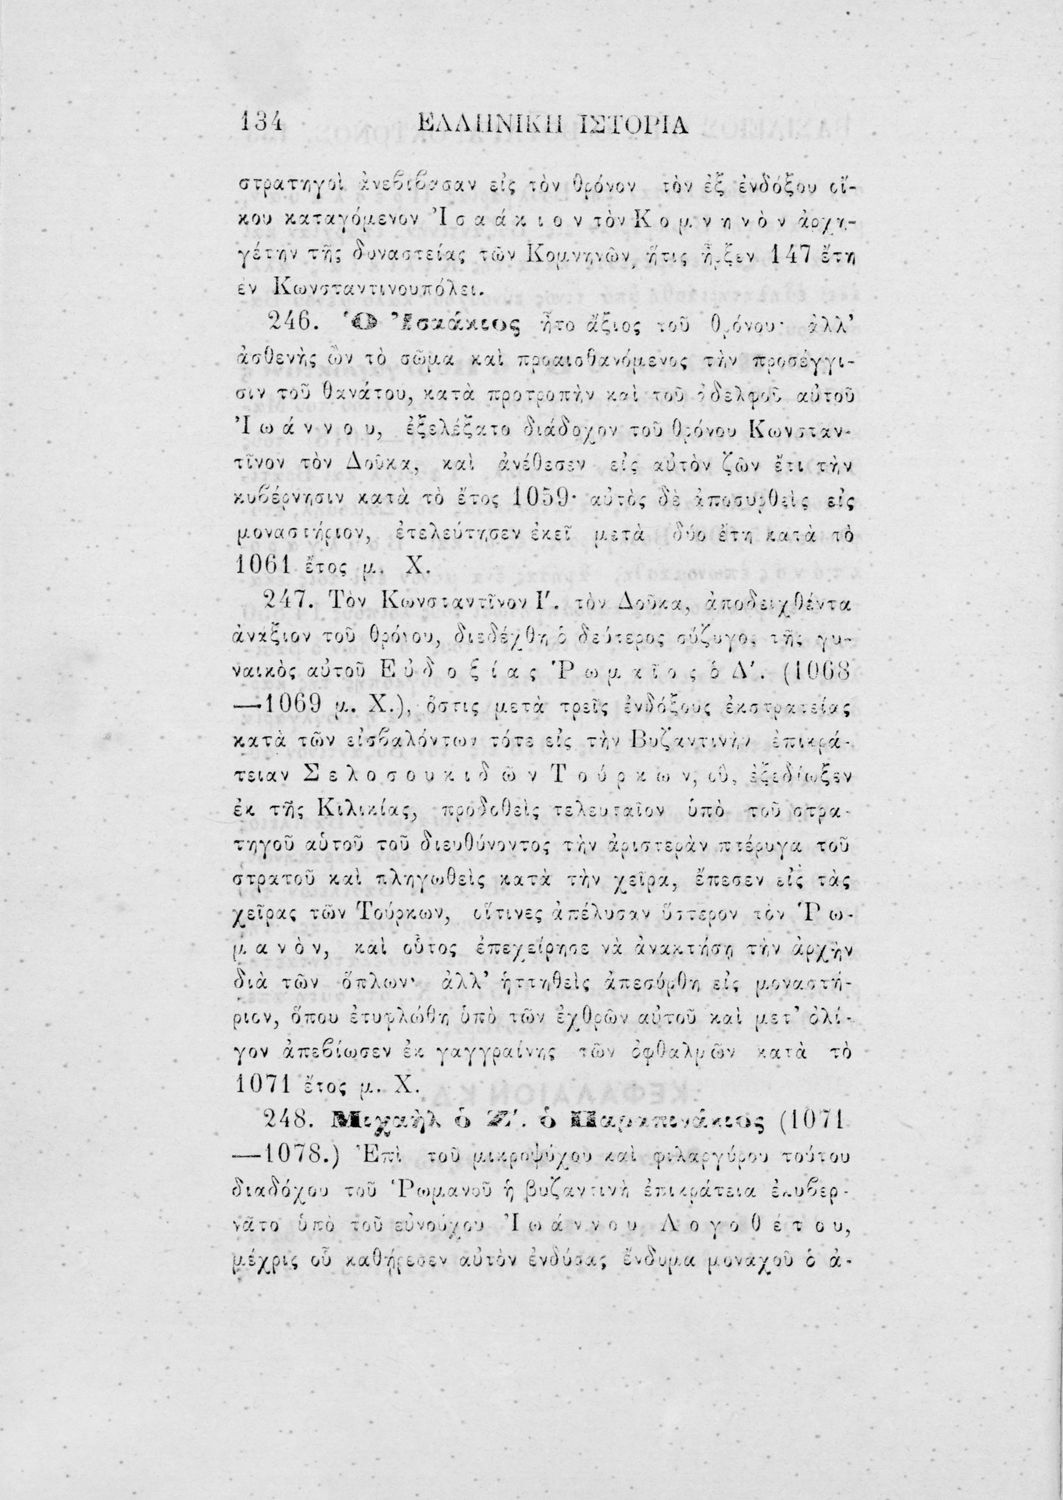 134 ΕΛΛΗΝΙΚΗ ΙΣΤΟΡΙΑ
στρατηγοὶ ἀνεβίβασαν εἰς τὸν θρόνον τὸν ἐξ ἐνδόξου οἴ-
κου καταγόμενον Ἰσαάκιον τὸν Κομνηνὸν ἀρχη-
γέτην τῆς δυναστείας τῶν Κομνηνῶν, ἥτις ἦρξεν 147 ἔτη
ἐν Κωνσταντινουπόλει.
246. Ὁ Ἰσαάκιος ἦτο ἄξιος τοῦ θρόνου· ἀλλ’
ἀσθενὴς ὢν τὸ σῶμα καὶ προαισθανόμενος τὴν προσέγγι-
σιν τοῦ θανάτου, κατὰ προτροπὴν καὶ τοῦ ἀδελφοῦ αὐτοῦ
Ἰωάννου, ἐξελέξατο διάδοχον τοῦ θρόνου Κωνσταν-
τῖνον τὸν Δοῦκα, καὶ ἀνέθεσεν εἰς αὐτὸν ζῶν ἔτι τὴν
κυβέρνησιν κατὰ τὸ ἔτος 1059· αὐτὸς δὲ ἀποσυρθεὶς εἰς
μοναστήριον, ἐτελεύτησεν ἐκεῖ μετὰ δύο ἔτη κατὰ τὸ
1061 ἔτος μ. Χ.
247. Τὸν Κωνσταντῖνον Ι΄. τὸν Δοῦκα, ἀποδειχθέντα
ἀνάξιον τοῦ θρόνου, διεδέχθη ὁ δεύτερος σύζυγος τῆς γυ-
ναικὸς αὐτοῦ Εὐδοξίας Ῥωμαῖος ὁ Δ΄. (1068
—1069 μ. Χ.), ὅστις μετὰ τρεῖς ἐνδόξους ἐκστρατείας
κατὰ τῶν εἰσβαλόντων τότε εἰς τὴν Βυζαντινὴν ἐπικρά-
τειαν Σελοσουκιδῶν Τούρκων, οὓς ἐξεδίωξεν
ἐκ τῆς Κιλικίας, προδοθεὶς τελευταῖον ὑπὸ τοῦ στρα-
τηγοῦ αὑτοῦ τοῦ διευθύνοντος τὴν ἀριστερὰν πτέρυγα τοῦ
στρατοῦ καὶ πληγωθεὶς κατὰ τὴν χεῖρα, ἔπεσεν εἰς τὰς
χεῖρας τῶν Τούρκων, οἵτινες ἀπέλυσαν ὕστερον τὸν Ῥω-
μανὸν, καὶ οὗτος ἐπεχείρησε νὰ ἀνακτήσῃ τὴν ἀρχὴν
διὰ τῶν ὅπλων· ἀλλ’ ἡττηθεὶς ἀπεσύρθη εἰς μοναστή-
ριον, ὅπου ἐτυφλώθη ὑπὸ τῶν ἐχθρῶν αὐτοῦ καὶ μετ’ ὀλί-
γον ἀπεβίωσεν ἐκ γαγγραίνης τῶν ὀφθαλμῶν κατὰ τὸ
1071 ἔτος μ. Χ.
248. Μιχαὴλ ὁ Ζ΄. ὁ Παραπινάκιος (1071
—1078.) Ἐπὶ τοῦ μικροψύχου καὶ φιλαργύρου τούτου
διαδόχου τοῦ Ῥωμανοῦ ἡ βυζαντινὴ ἐπικράτεια ἐκυβερ-
νᾶτο ὑπὸ τοῦ εὐνούχου Ἰωάννου Λογοθέτου,
μέχρις οὗ καθῄρεσεν αὐτὸν ἐνδύσας ἔνδυμα μοναχοῦ ὁ ἀ-